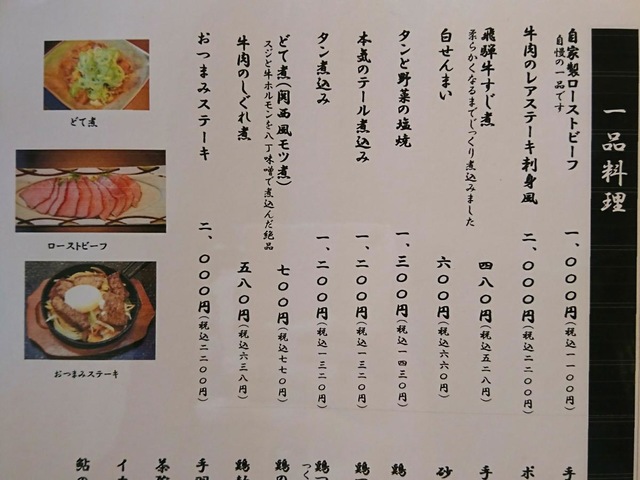 一品料理
自家製ローストビーフ
自慢の一品です
一、〇〇〇円(税込一一〇〇円)
牛肉のレアステーキ刺身風
二、〇〇〇円(税込二二〇〇円)
飛騨牛すじ煮
柔らかくなるまでじっくり煮込みました
四八〇円(税込五二八円)
白せんまい
六〇〇円(税込六六〇円)
タンと野菜の塩焼
一、三〇〇円(税込一四三〇円)
本気のテール煮込み
一、二〇〇円(税込一三二〇円)
タン煮込み
一、二〇〇円(税込一三二〇円)
どて煮(関西風モツ煮)
スジと牛ホルモンを八丁味噌で煮込んだ絶品
七〇〇円(税込七七〇円)
牛肉のしぐれ煮
五八〇円(税込六三八円)
おつまみステーキ
二、〇〇〇円(税込二二〇〇円)
どて煮
ローストビーフ
おつまみステーキ